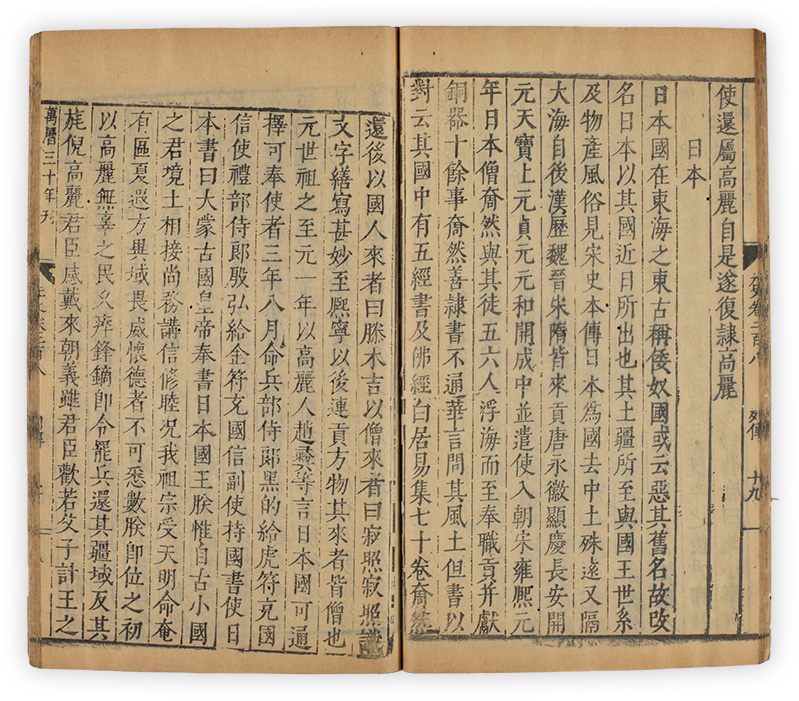 使還屬高麗自是遂復隷高麗
日本
日本國在東海之東古稱倭奴國或云惡其舊名故改
名日本以其國近日所出也其土疆所至與國王世系
及物產風俗見宋史本傳日本為國去中土殊遠又隔
大海自後漢歷魏晉宋隋皆來貢唐永徽顯慶長安開
元天寶上元貞元元和開成中並遣使入朝宋雍熙元
年日本僧奝然與其徒五六人浮海而至奉職貢并獻
銅器十餘事奝然善隷書不通華言問其風土但書以
對云其國中有五經書及佛經白居易集七十卷奝然
還後以國人來者曰滕木吉以僧來者曰寂照寂照識
文字繕寫甚妙至熙寧以後連貢方物其來者皆僧也
元世祖之至元二年以高麗人趙彞等言日本國可通
擇可奉使者三年八月命兵部侍郎黑的給虎符充國
信使禮部侍郎殷弘給金符充國信副使持國書使日
本書曰大蒙古國皇帝奉書日本國王朕惟自古小國
之君境土相接尚務講信修睦况我祖宗受天明命奄
有區夏遐方異域畏威懷德者不可悉數朕卽位之初
以高麗無辜之民乆瘁鋒鏑卽令罷兵還其疆域反其
旄倪高麗君臣感戴來朝義雖君臣歡若父子計王之
萬曆三十年刋
列傳 十九